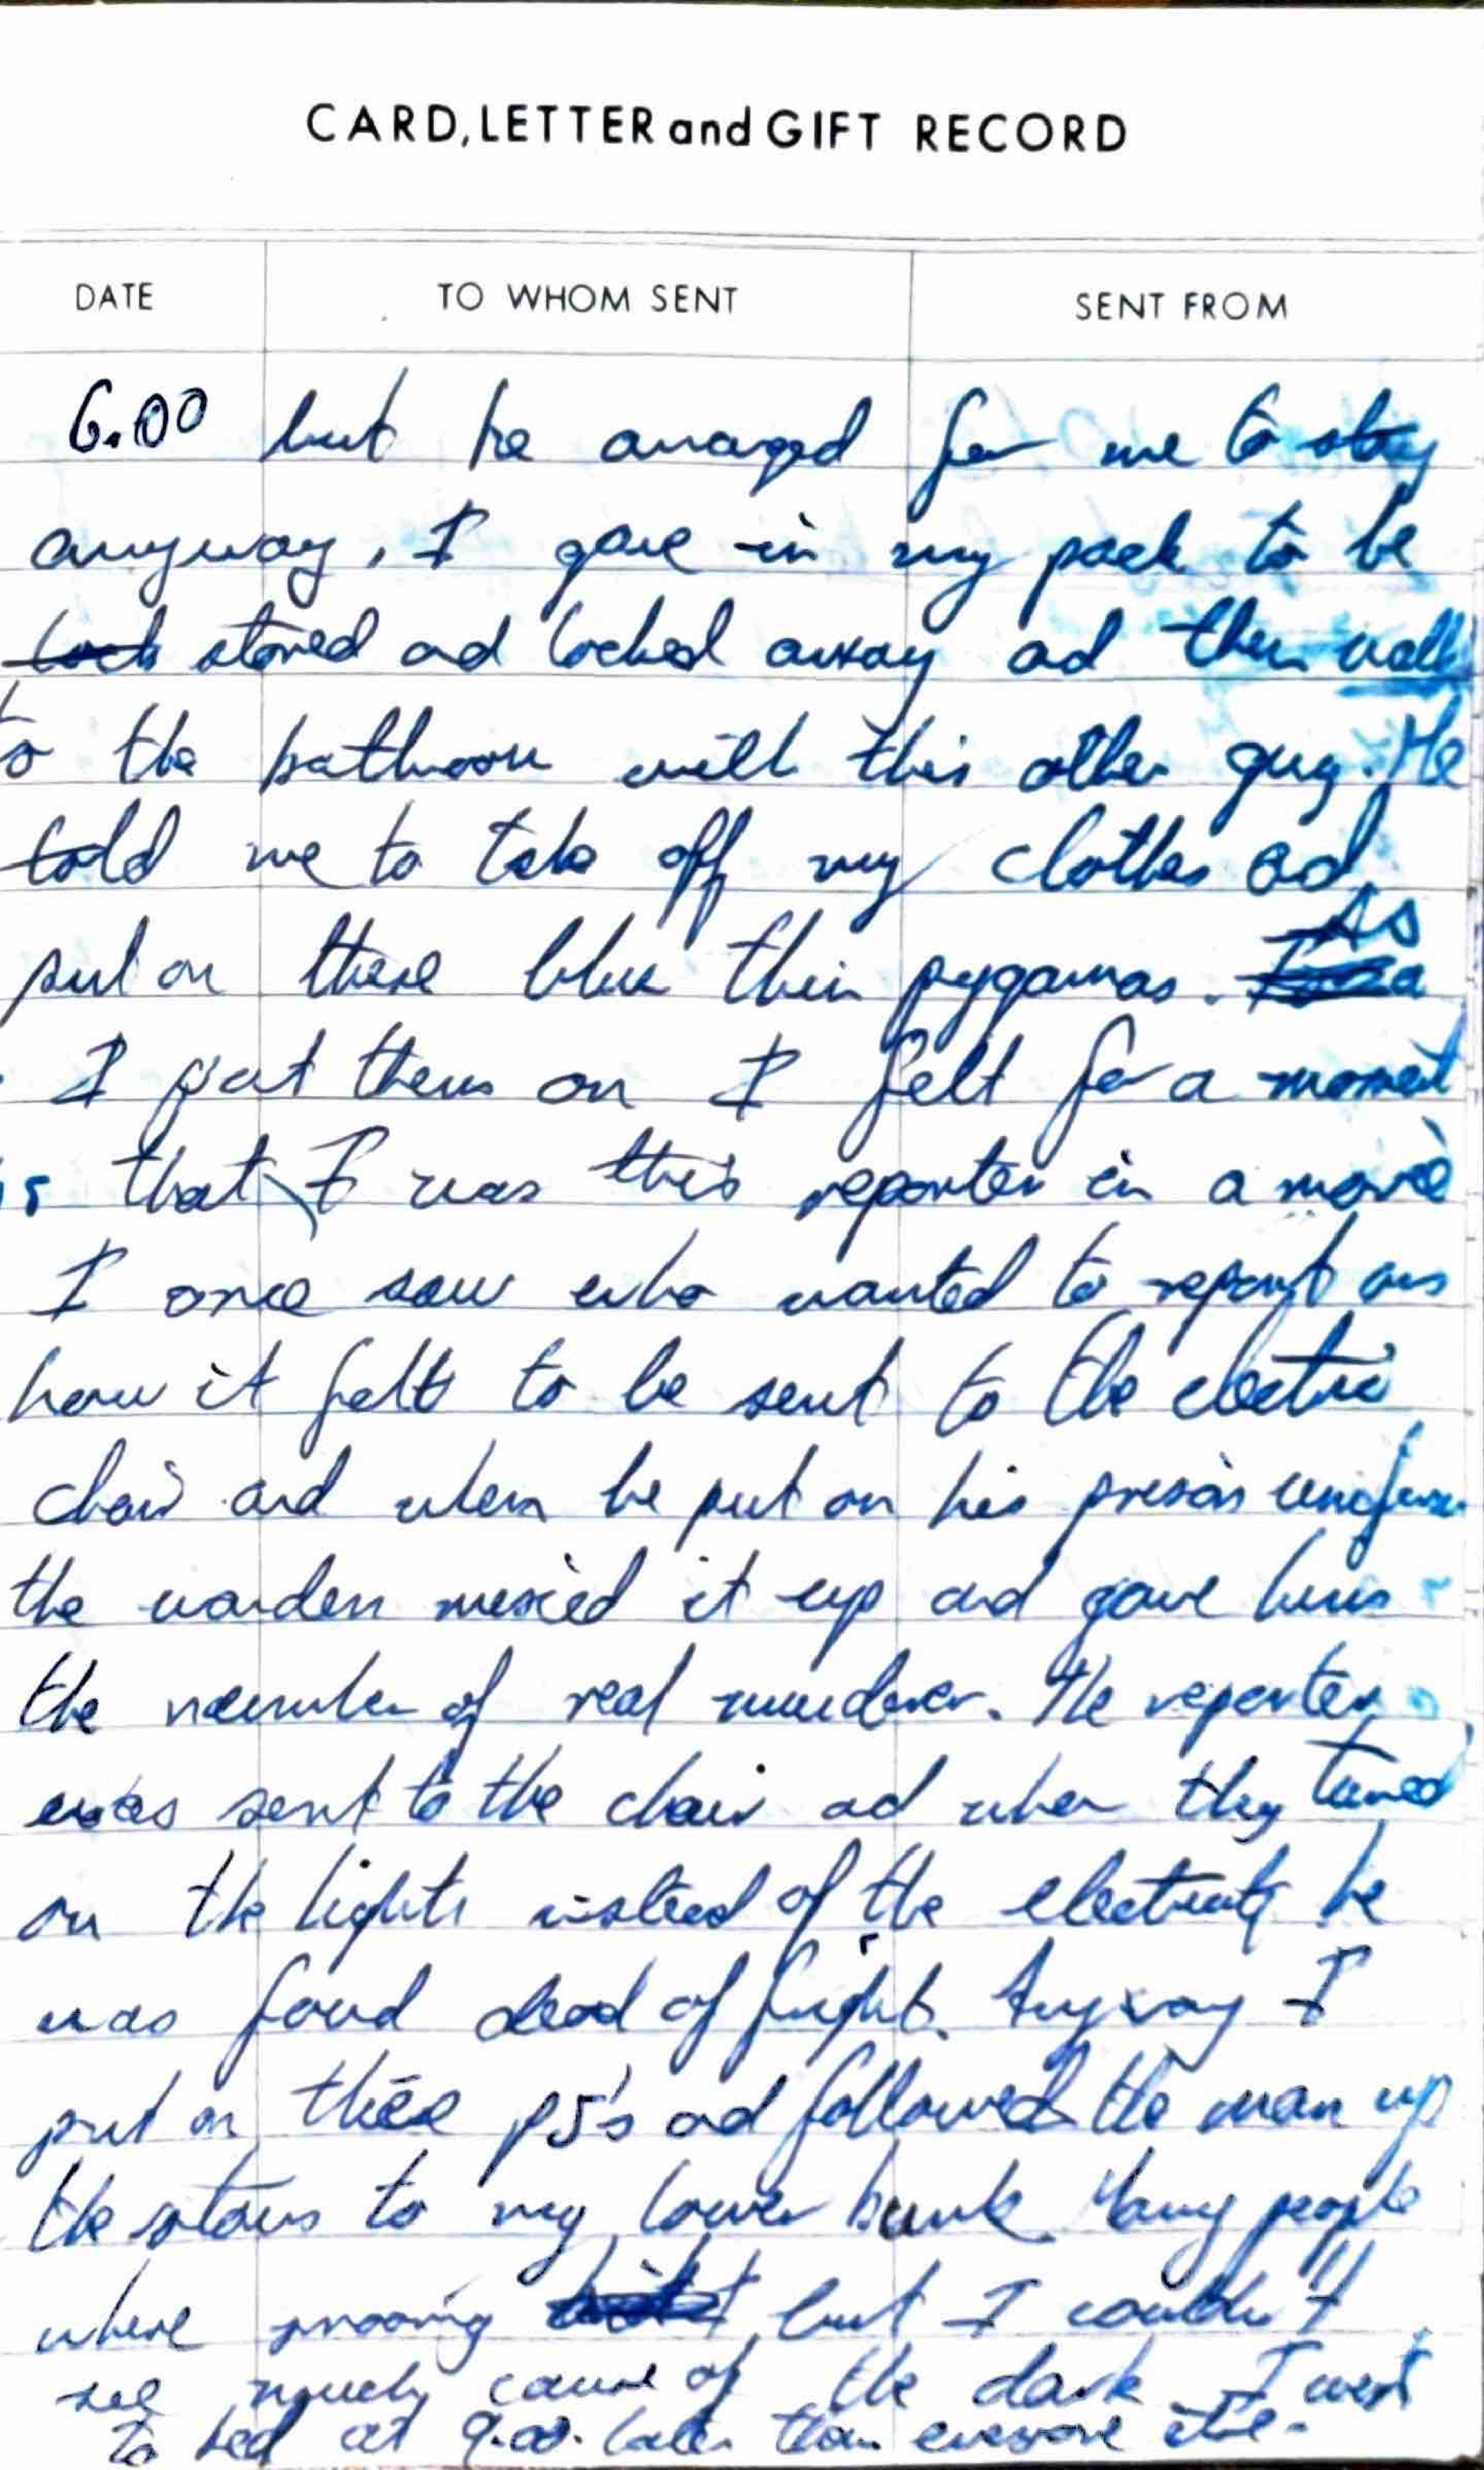 CARD, LETTER and GIFT RECORD
DATE TO WHOM SENT SENT FROM
6.00 but he arranged for me to stay
anyway, I gave in my pack to be
lock stored and locked away and then walk
to the bathroom with this other guy. He
told me to take off my clothes and
put on these blue thin pygamas. As
I put them on I felt for a moment
that I was this reporter in a movie
I once saw who wanted to report on
how it felt to be sent to the electric
chair and when he put on his prison uniform
the warden mixed it up and gave him
the number of real murderer. The reporter
was sent to the chair and when they turned
on the lights instead of the electricity he
was found dead of fright. Anyway I
put on these PJ's and followed the man up
the stairs to my lower bunk. Many people
where snoring but I couldn't
see much cause of the dark. I went
to bed at 9.00. later than everyone else.